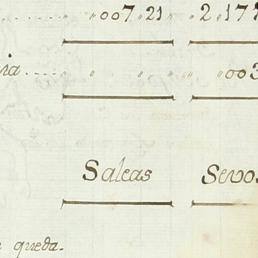 ..... " 007 " 21 " 2 " 177
ia ..... " " " " 003
Salcas Sevos
queda.